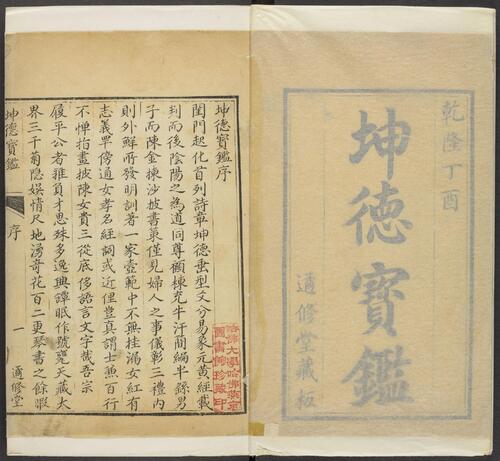 乾隆丁酉
坤德寶鑑
適修堂藏板
坤德寶鑑序
閨門起化首列詩章坤德垂型文分易象元黃經載
判而後陰陽之為道同尊顧棟充牛汗簡編半錄男
子而陳金揀沙披書菓僅見婦人之事儀彰三禮內
則外鮮所發明訓著一家壼範中不無挂漏女紅有
志義罕傍通女孝名經詞或近俚豈真謂士無百行
不憚指畫披陳女貴三從底侈語言文字哉吾宗
履平公者雅負才思殊多逸興鐔眠作號甕天藏大
界三千菊隱娛情尺地湧奇花百二更琴書之餘暇
坤德寶鑑
序
一
適修堂
哈佛大學哈佛燕京
圖書館珍藏印